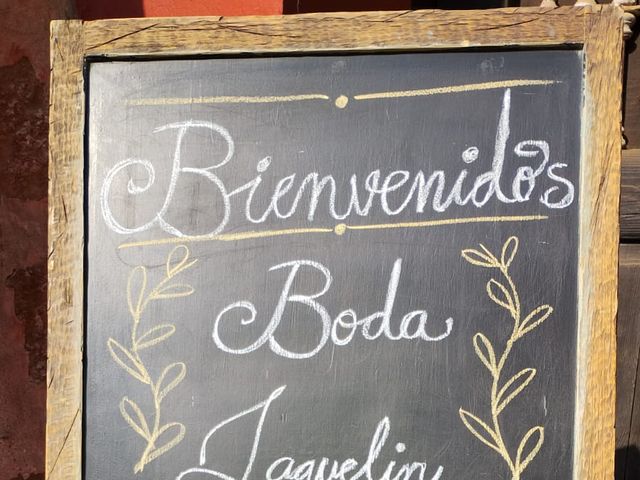 Bienvenidos
Boda
Jaquelin